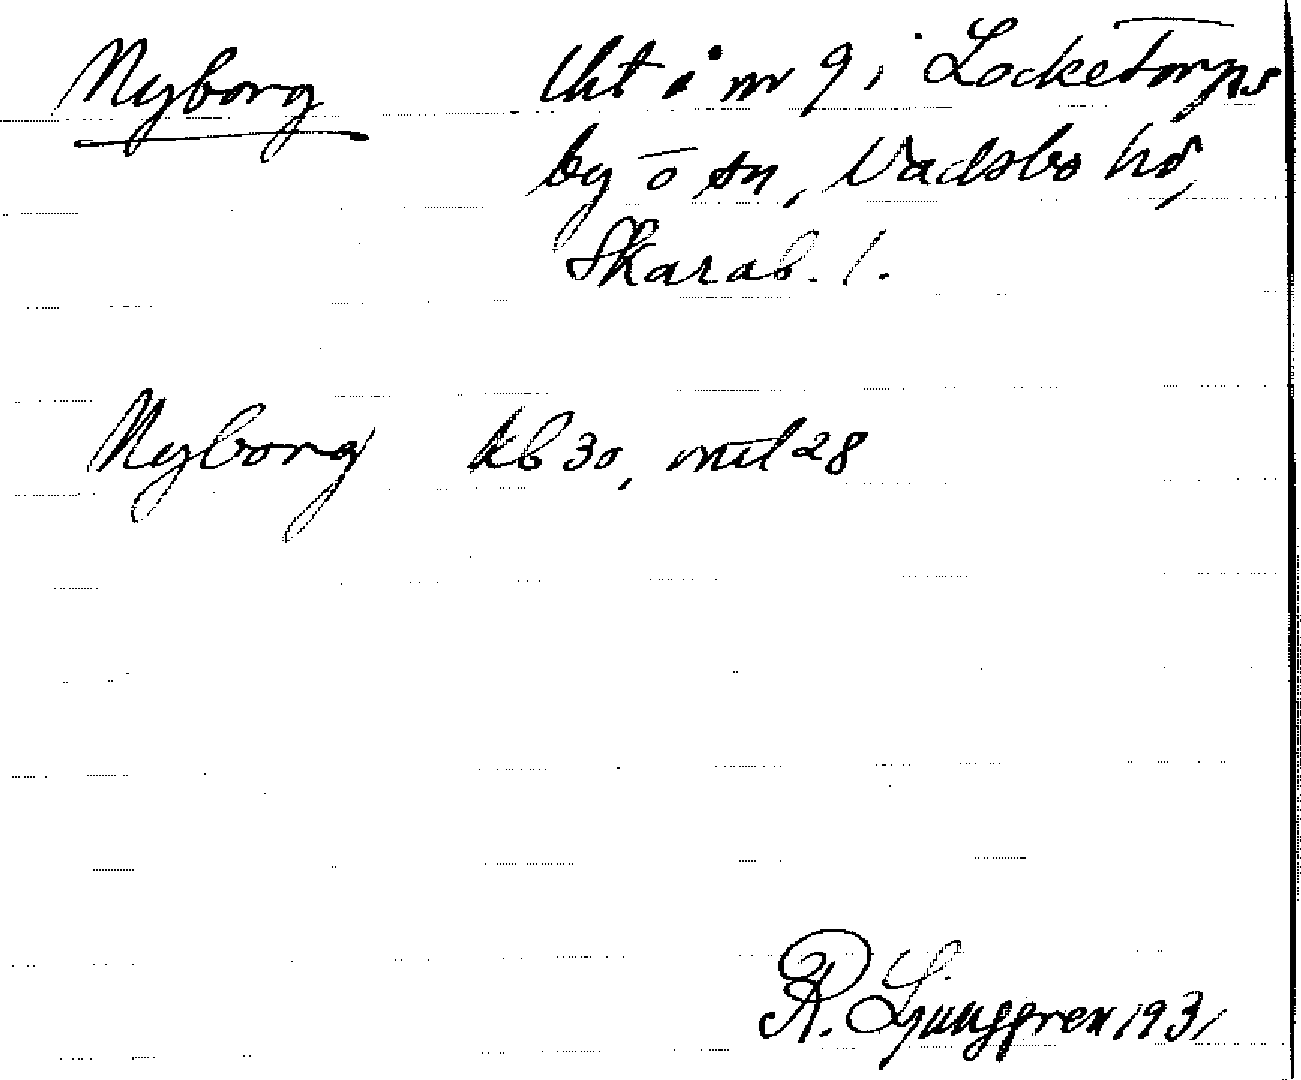 Nyborg lht å nr 9 i Locketorps
by o sn, Vadsbo hd,
Skarab. l.
Nyborg kb 30, mtl 28
R. Ljunggren 1931